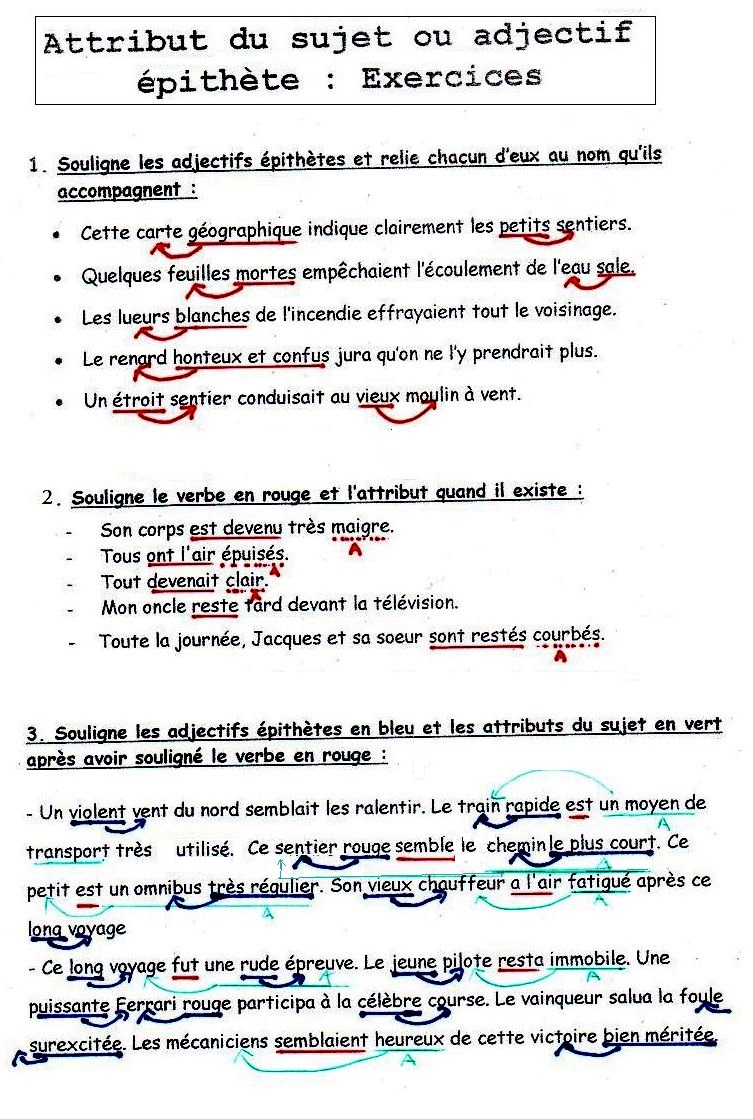 Attribut du sujet ou adjectif
épithète : Exercices
1. Souligne les adjectifs épithètes et relie chacun d'eux au nom qu'ils
accompagnent :
• Cette carte géographique indique clairement les petits sentiers.
• Quelques feuilles mortes empêchaient l'écoulement de l'eau sale.
• Les lueurs blanches de l'incendie effrayaient tout le voisinage.
• Le renard honteux et confus jura qu'on ne l'y prendrait plus.
• Un étroit sentier conduisait au vieux moulin à vent.
2. Souligne le verbe en rouge et l'attribut quand il existe :
- Son corps est devenu très maigre.
A
- Tous ont l'air épuisés.
A
- Tout devenait clair.
A
- Mon oncle reste tard devant la télévision.
- Toute la journée, Jacques et sa soeur sont restés courbés.
A
3. Souligne les adjectifs épithètes en bleu et les attributs du sujet en vert
après avoir souligné le verbe en rouge :
- Un violent vent du nord semblait les ralentir. Le train rapide est un moyen de
A
transport très utilisé. Ce sentier rouge semble le chemin le plus court. Ce
A
petit est un omnibus très régulier. Son vieux chauffeur a l'air fatigué après ce
A A
long voyage
- Ce long voyage fut une rude épreuve. Le jeune pilote resta immobile. Une
A A
puissante Ferrari rouge participa à la célèbre course. Le vainqueur salua la foule
surexcitée. Les mécaniciens semblaient heureux de cette victoire bien méritée.
A